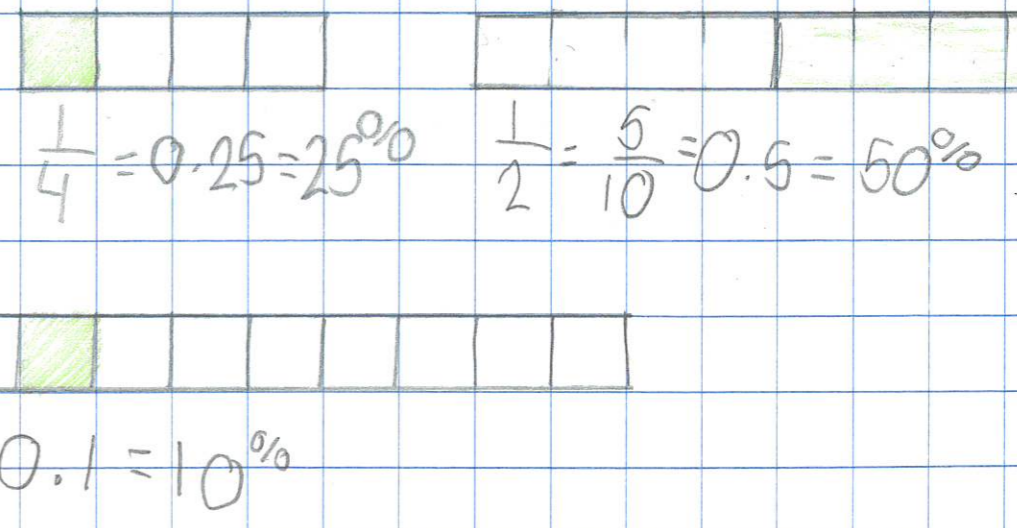 1/4 = 0.25 = 25%
1/2 = 5/10 = 0.5 = 50%
0.1 = 10%